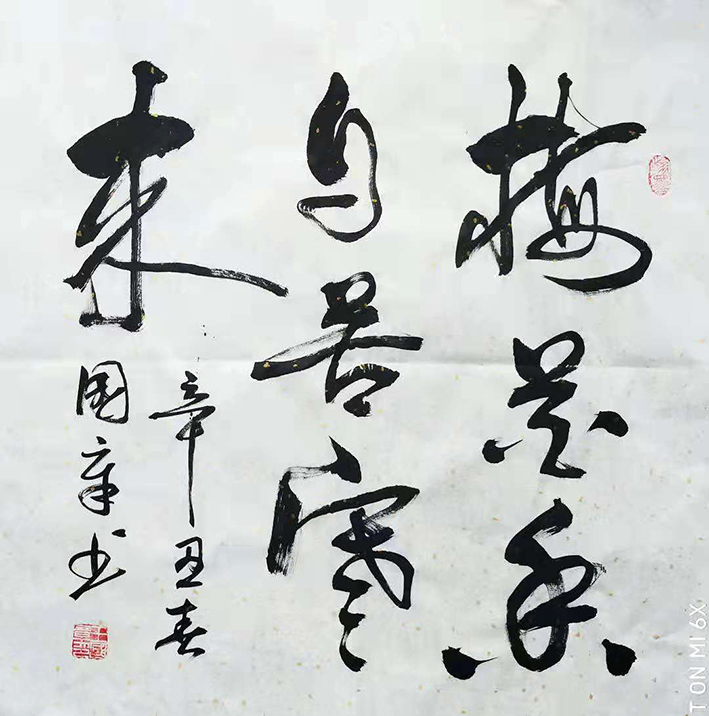 梅花香
自苦寒
来
辛丑春
国章书
T ON MI 6X